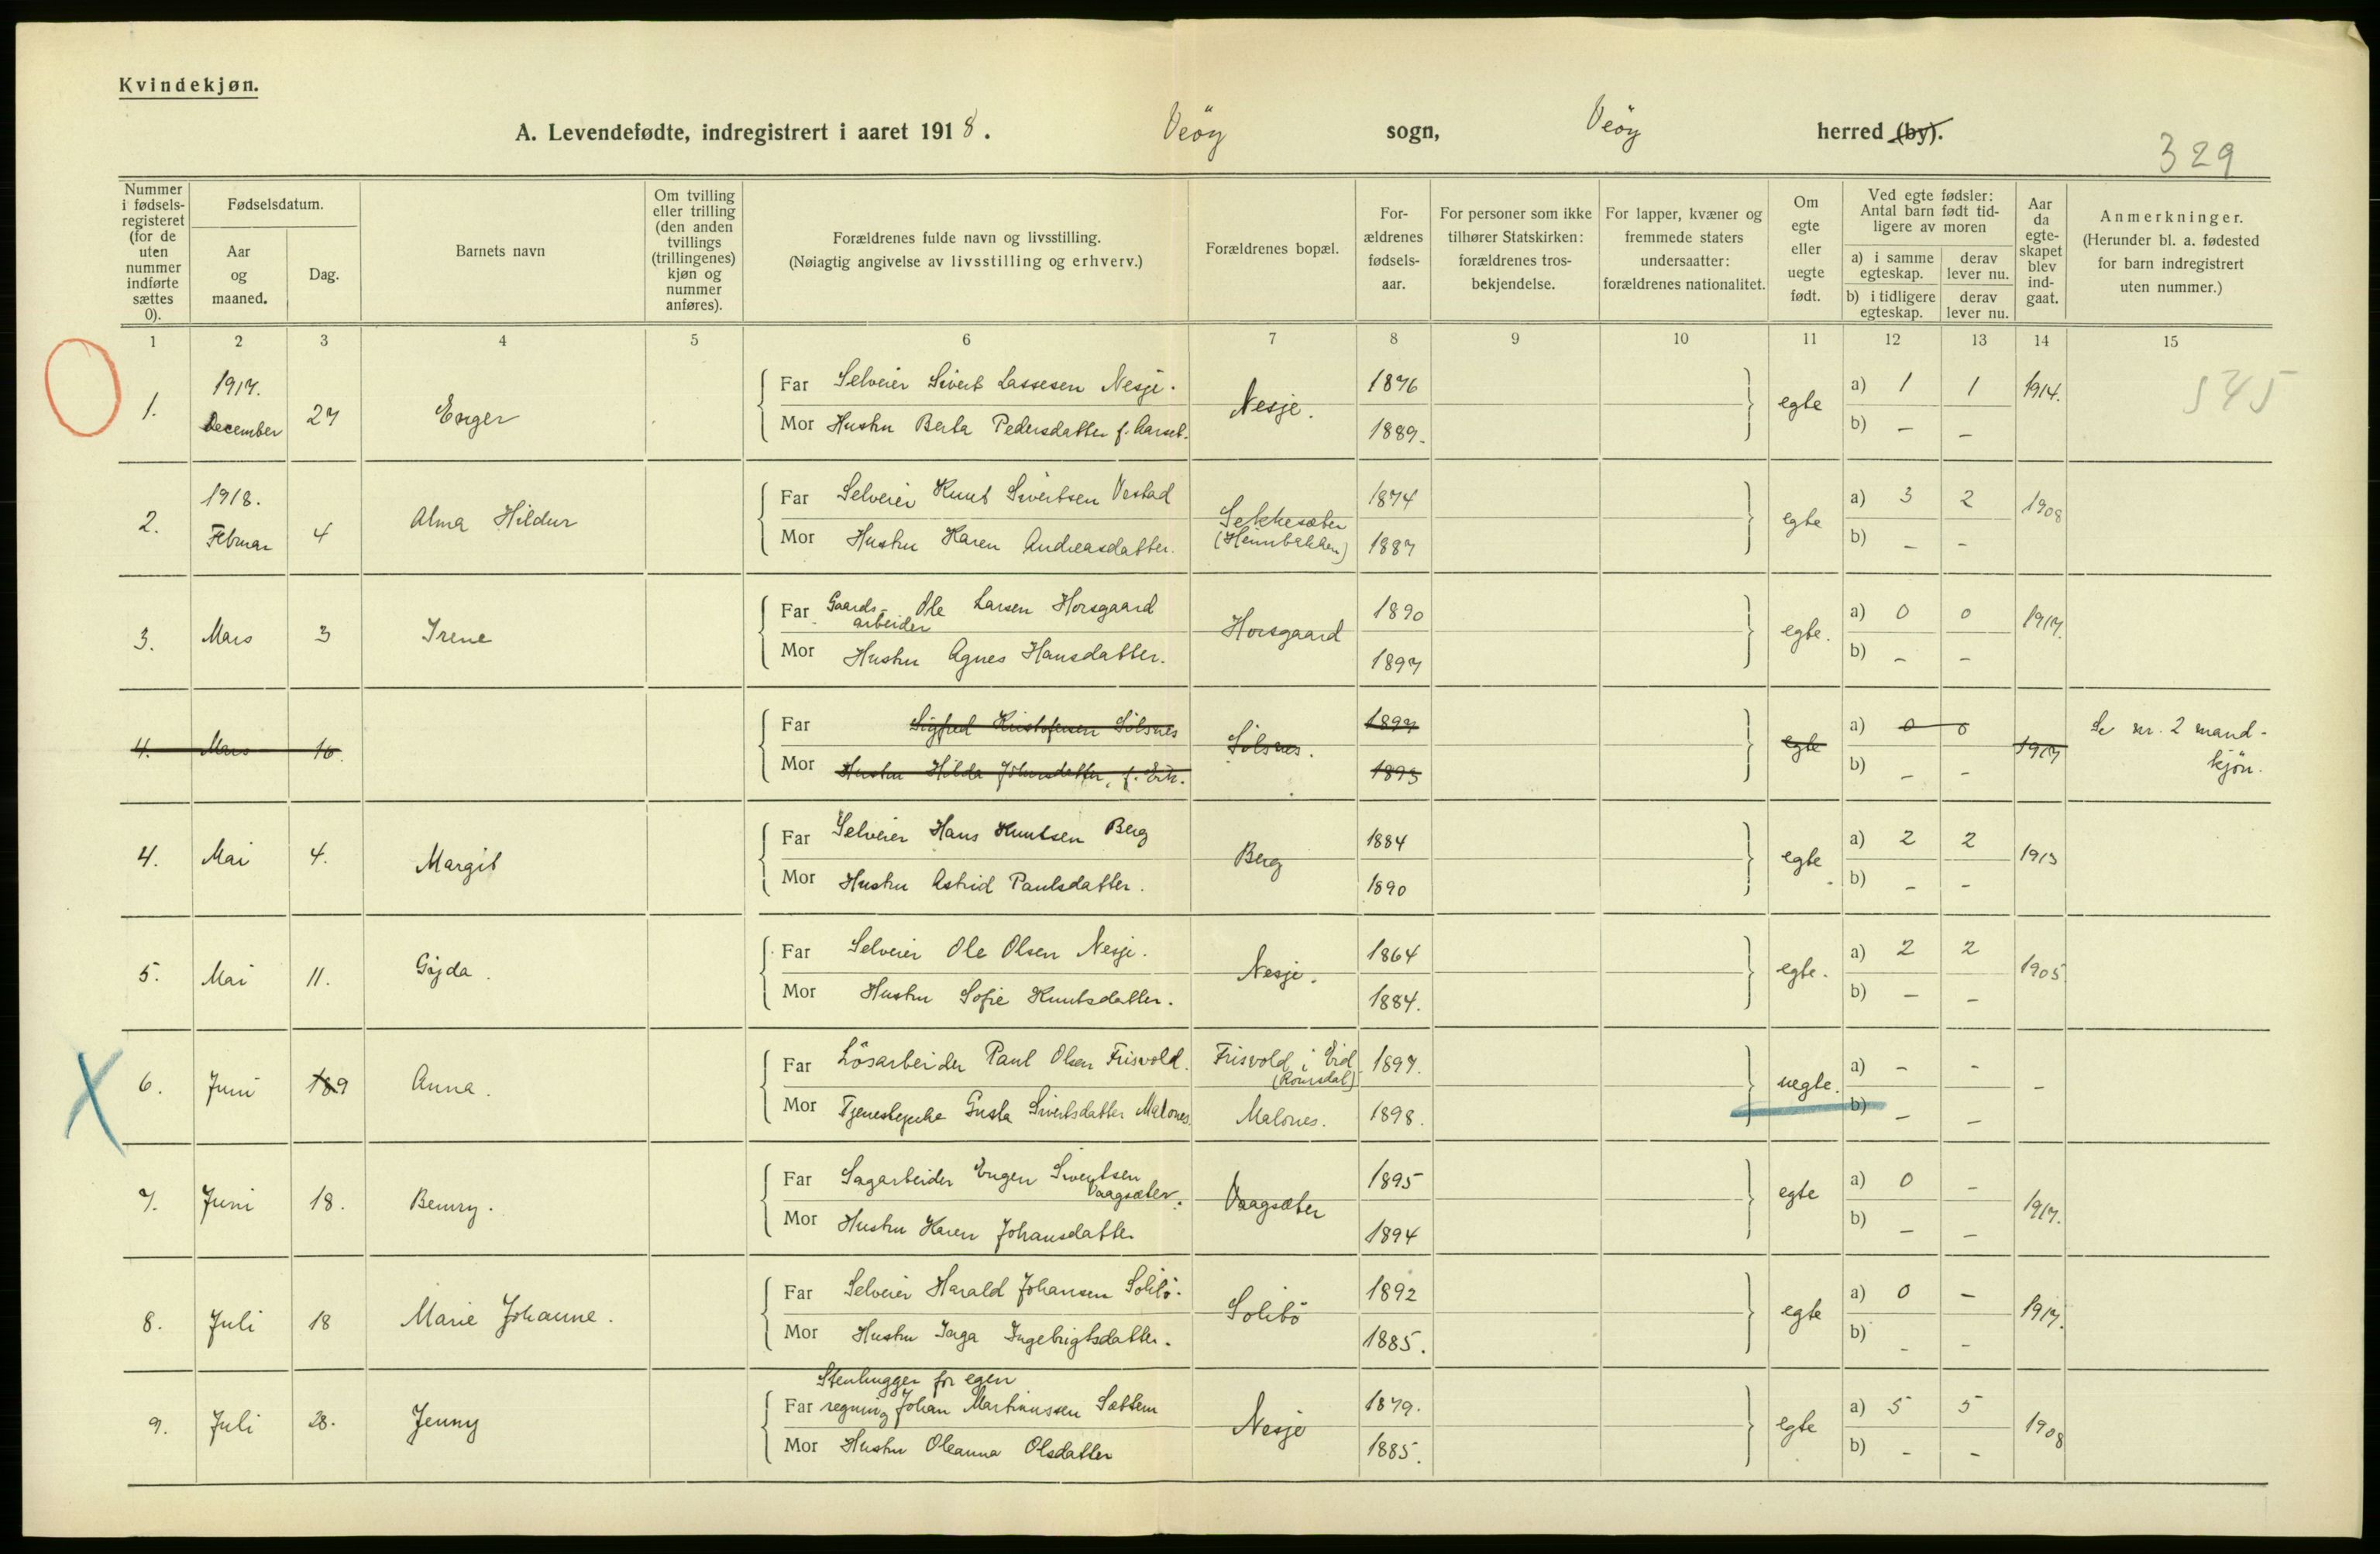 Kvindekjøn.
A. Levendefødte, indregistrert i aaret 1918. Veöy sogn, Veöy herred (by).
329
Nummer i fødsels-registeret (for de uten nummer indførte sættes 0).
Fødselsdatum.
Aar og maaned.
Dag.
Barnets navn
Om tvilling eller trilling (den anden tvillings (trillingenes) kjøn og nummer anføres).
Forældrenes fulde navn og livsstilling.
(Nøiagtig angivelse av livsstilling og erhverv.)
Forældrenes bopæl.
For-ældrenes fødsels-aar.
For personer som ikke tilhører Statskirken: forældrenes tros-bekjendelse.
For lapper, kvæner og fremmede staters undersaatter: forældrenes nationalitet.
Om egte eller uegte født.
Ved egte fødsler: Antal barn født tid-ligere av moren
a) i samme egteskap.
derav lever nu.
b) i tidligere egteskap.
derav lever nu.
Aar da egte-skapet blev ind-gaat.
Anmerkninger.
(Herunder bl. a. fødested for barn indregistrert uten nummer.)
1 2 3 4 5 6 7 8 9 10 11 12 13 14 15
1. 1917. December 27 Enger
Far Selveier Sivert Lassesen Nesje. Nesje. 1876 egte a) 1 1 1914. 545
Mor Hustru Berta Pedersdatter f. Aarset. 1889. b) – –
2. 1918. Februar 4 Alma Hildur
Far Selveier Knut Sivertsen Vestad Sekkesæter (Heimbakken) 1874 egte a) 3 2 1908
Mor Hustru Karen Andreasdatter. 1887 b) – –
3. Mars 3 Irene
Far Gaards-arbeider Ole Larsen Horsgaard Horsgaard 1890 egte. a) 0 0 1917.
Mor Hustru Agnes Hansdatter. 1897 b) – –
4. Mars 16.
Far Sigfred Kristofersen Sölsnes Sölsnes. 1897 egte a) 0 0 1917 Se nr. 2 mand-
Mor Hustru Hilda Johnsdatter, f. 1893 b) – – kjön.
4. Mai 4. Margit
Far Selveier Hans Knutsen Berg Berg 1884 egte a) 2 2 1913
Mor Hustru Astrid Paulsdatter. 1890 b) – –
5. Mai 11. Göjda.
Far Selveier Ole Olsen Nesje. Nesje. 1864 egte. a) 2 2 1905
Mor Hustru Sofie Knutsdatter. 1884. b) – –
6. Juni 9 Anna.
Far Lösarbeider Paul Olsen Frisvold. Frisvold i Eid (Romsdal) 1897. uegte. a) – – –
Mor Tjenestepike Gusta Sivertsdatter Malones. Malones. 1898. b) – –
7. Juni 18. Benny.
Far Sagarbeider Enger Sivertsen Vaagsæter. Vaagsæter 1895 egte a) 0 – 1917.
Mor Hustru Karen Johansdatter 1894 b) – –
8. Juli 18 Marie Johanne.
Far Selveier Harald Johansen Solibö. Solibö 1892 egte a) 0 – 1917.
Mor Hustru Inga Ingebrigtsdatter. 1885. b) – –
9. Juli 28. Jenny
Stenhugger for egen
Far regning Johan Martinussen Sættem Nesje 1879. egte a) 5 5 1908
Mor Hustru Oleanna Olsdatter 1885. b) – –